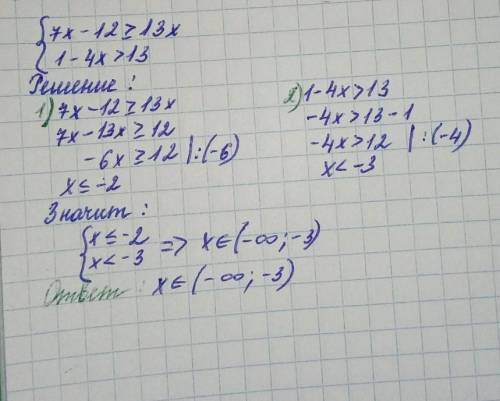 7x - 12 ≥ 13x
1 - 4x > 13
Решение:
1) 7x - 12 ≥ 13x
7x - 13x ≥ 12
-6x ≥ 12 | : (-6)
x ≤ -2
2) 1 - 4x > 13
-4x > 13 - 1
-4x > 12 | : (-4)
x < -3
Значит:
x ≤ -2
x < -3 => x ∈ (-∞; -3)
Ответ: x ∈ (-∞; -3)